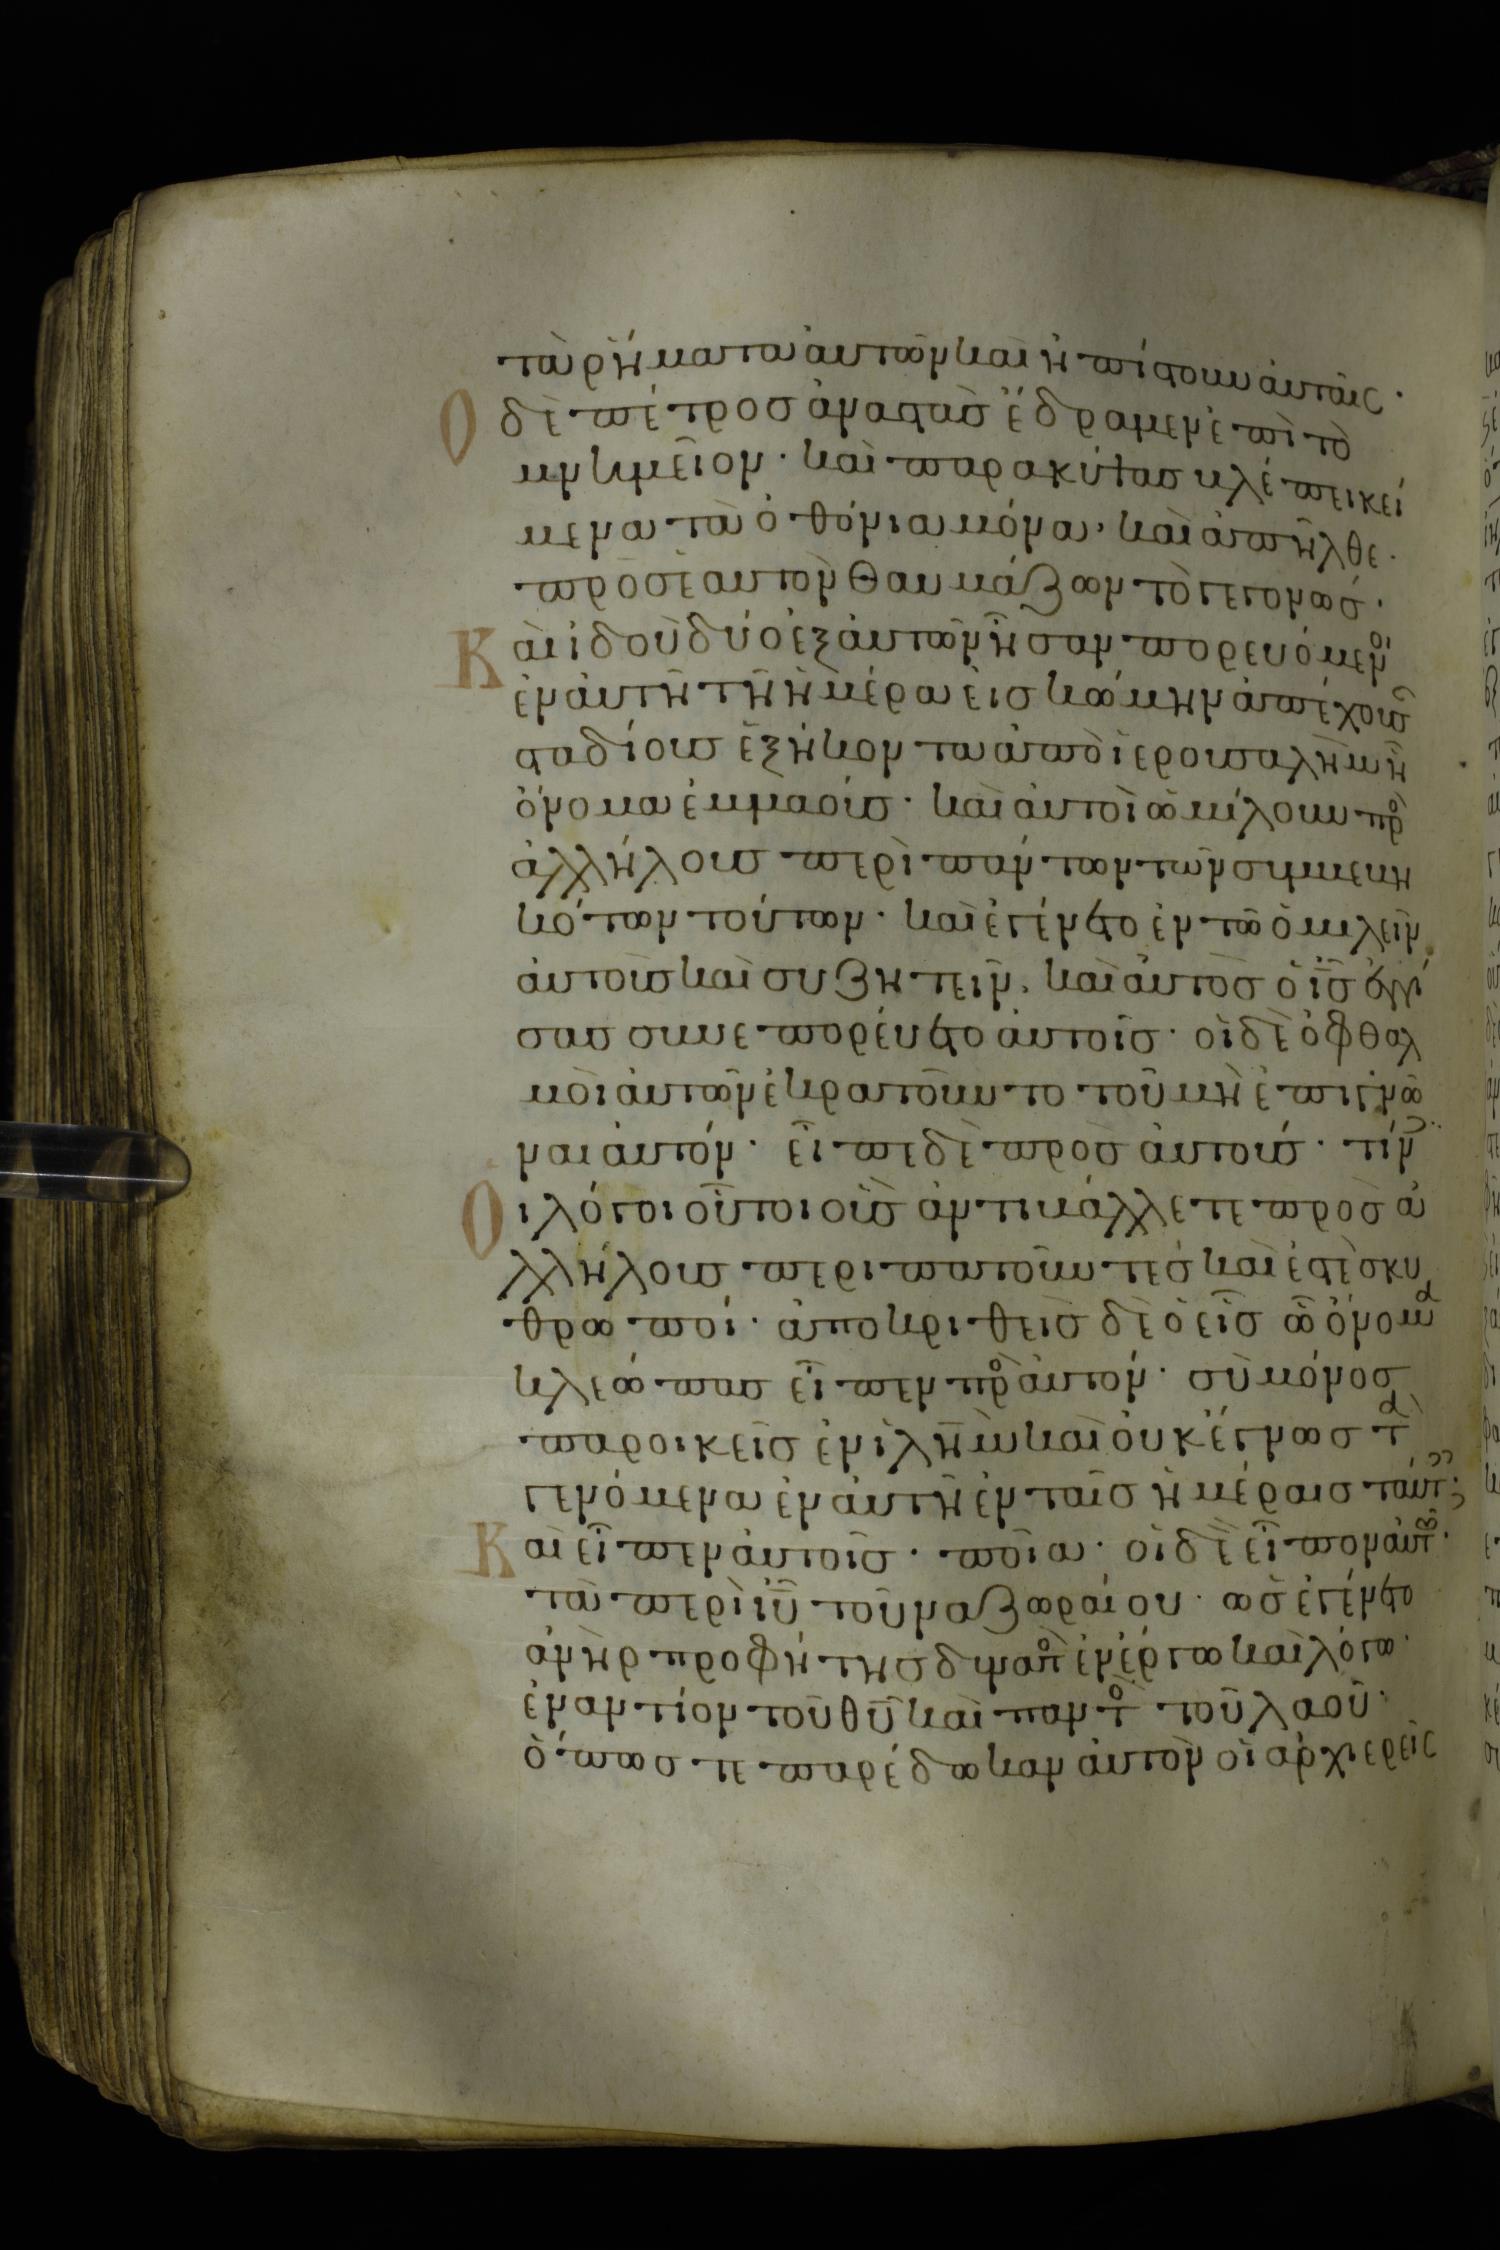 τὰ ῥήματα αὐτῶν καὶ ἠπίστουν αὐταῖς·
Ὁ δὲ πέτρος ἀναστὰς ἔδραμεν ἐπὶ τὸ
μνημεῖον· καὶ παρακύψας βλέπει κεί
μενα τὰ ὀθόνια μόνα· καὶ ἀπῆλθε·
πρὸς ἑαυτὸν θαυμάζων τὸ γεγονώς·
Καὶ ἰδοὺ δύο ἐξ αὐτῶν ἦσαν πορευόμενοι
ἐν αὐτῇ τῇ ἡμέρᾳ εἰς κώμην ἀπέχουσ
σταδίους ἑξήκοντα ἀπὸ ἱερουσαλὴμ ᾗ
ὄνομα ἐμμαούς· καὶ αὐτοὶ ὡμίλουν πρ
ἀλλήλους περὶ πάντων τῶν συμβεβη
κότων τούτων· καὶ ἐγένετο ἐν τῷ ὁμιλεῖν
αὐτοὺς καὶ συζητεῖν· καὶ αὐτὸς ὁ ις ἐγγί
σας συνεπορεύετο αὐτοῖς· οἱ δὲ ὀφθαλ
μοὶ αὐτῶν ἐκρατοῦντο τοῦ μὴ ἐπιγνῶ
ναι αὐτόν· εἶπε δὲ πρὸς αὐτούς· τίν
Οἱ λόγοι οὗτοι οὓς ἀντιβάλλετε πρὸς ἀ
λλήλους περιπατοῦντες καὶ ἐστὲ σκυ
θρωποί· ἀποκριθεὶς δὲ ὁ εἷς ᾧ ὄνομα
κλεώπας εἶπεν πρ αὐτόν· σὺ μόνος
παροικεῖς ἐν ιλημ καὶ οὐκ ἔγνως τὰ
γενόμενα ἐν αὐτῇ ἐν ταῖς ἡμέραις ταύτ;
Καὶ εἶπεν αὐτοῖς· ποῖα· οἱ δὲ εἶπον αὐτ·
τὰ περὶ ιυ τοῦ ναζωραίου· ὡς ἐγένετο
ἀνὴρ προφήτης δυνατὸς ἐν ἔργῳ καὶ λόγῳ·
ἐναντίον τοῦ θυ καὶ παντ τοῦ λαοῦ·
ὅπως τε παρέδωκαν αὐτὸν οἱ ἀρχιερεῖς